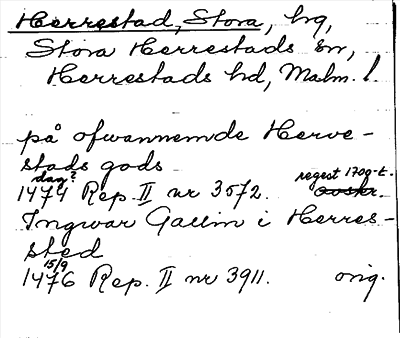 Herrestad, Stora, hg,
Stora Herrestads sn,
Herrestads hd, Malm. l.
på ofwannemde Herre-
stads gods
dag? regest 1700-t.
1474 Rep. II nr 3072. avskr.
Ingwar Gallin i Herres-
sted
15/9
1476 Rep. II nr 3911. orig.